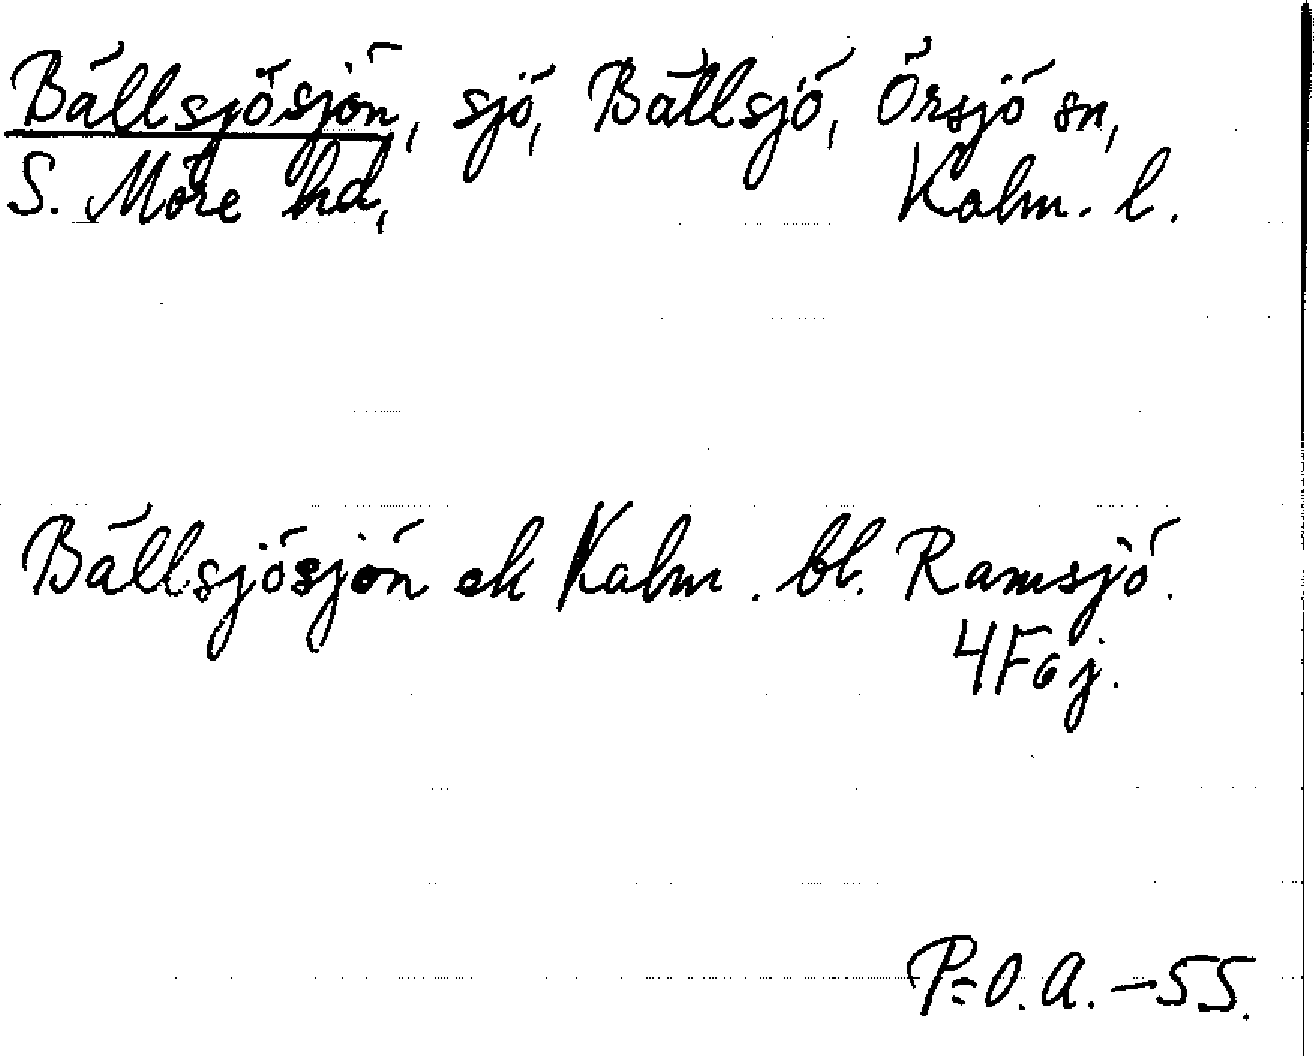 Bällsjösjön, sjö, Bällsjö, Örsjö sn,
S. Möre hd, Kalm. l.
Bällsjösjön ek Kalm. bl. Ramsjö.
4F6j.
P=O.A. -55.